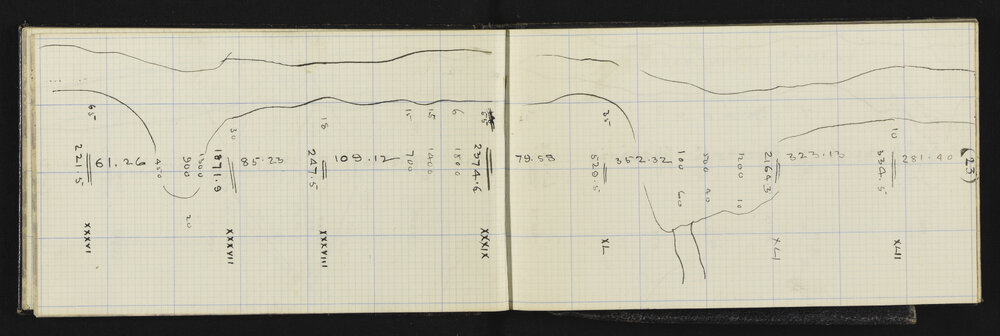 (23)
65
221.5
XXXVI
61.26
450
900
1300
20
30
1871.9
XXXVII
85.23
18
247.5
XXXVIII
109.12
15
700
15
1400
6
1800
2374.6
XXXIX
79.53
25
520.5
XL
352.32
100
60
500
40
1200
10
2164.3
XLI
323.13
10
834.5
XLII
281.40